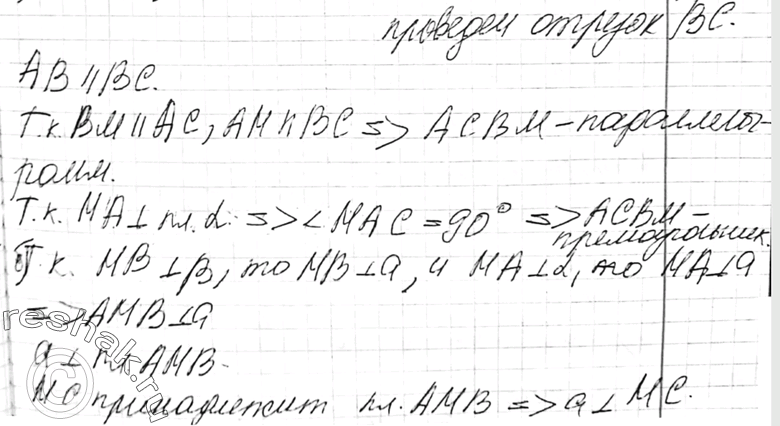 проведем отрезок BC.
AB || BC.
Т.к. BM || AC, AM || BC => ACBM - параллелог-
рамм.
Т.к. MA ⊥ пл. α => ∠MAC = 90° => ACBM -
прямоугольник.
Т.к. MB ⊥ β, то MB ⊥ a, и MA ⊥ α, то MA ⊥ a
=> AMB ⊥ a
a ⊥ пл. AMB.
MC принадлежит пл. AMB => a ⊥ MC.
reshak.ru